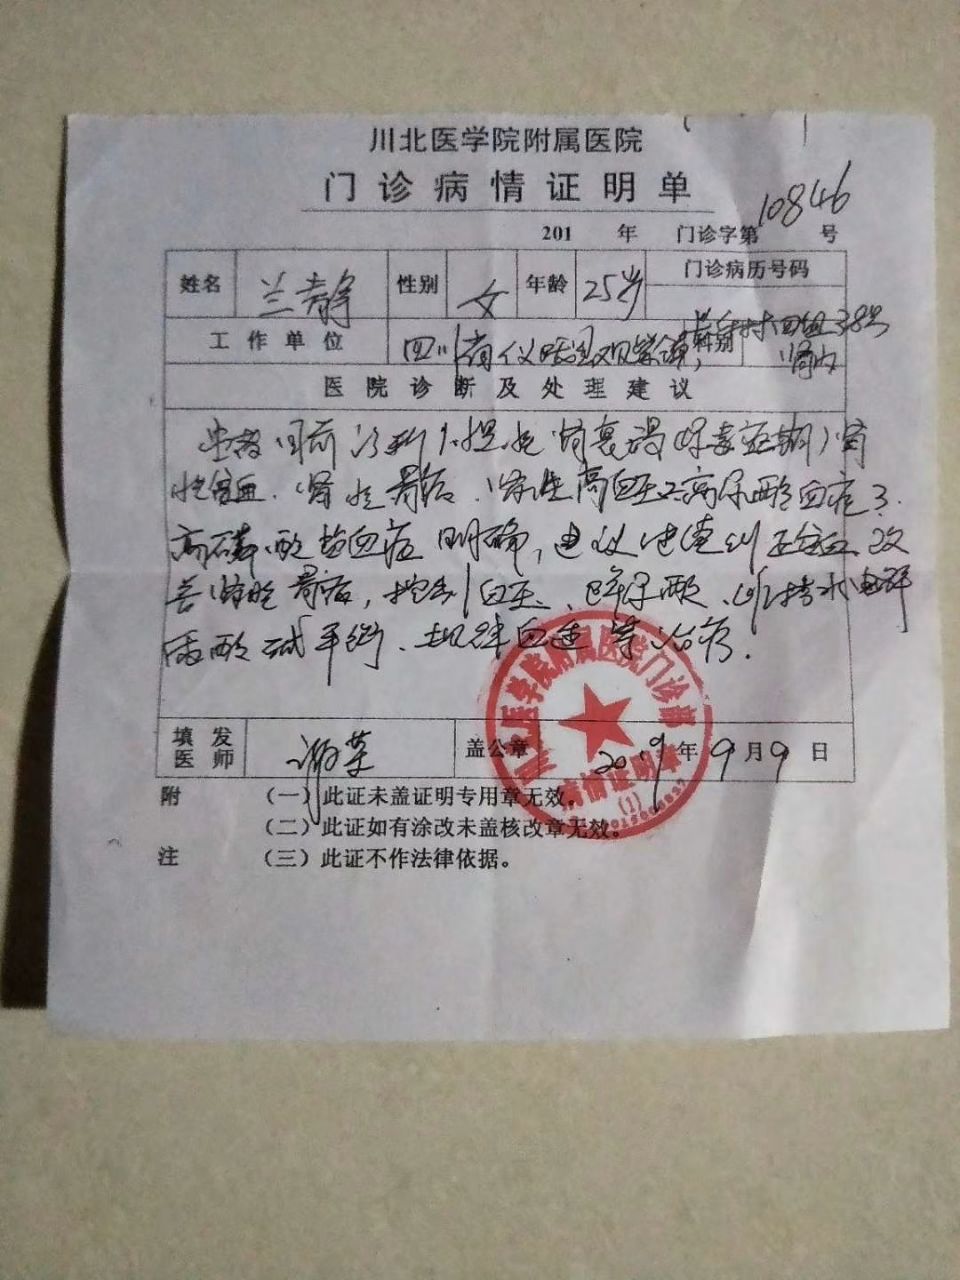 川北医学院附属医院
门诊病情证明单
10846
201 年 门诊字第 号
姓名 兰静 性别 女 年龄 25岁 门诊病历号码
工作单位 四川省仪陇县观紫镇, 村四组38号 科别 肾内
医院诊断及处理建议
患者目前诊断1.慢性肾衰竭(尿毒症期)肾
性贫血、肾性骨病、肾性高血压2.高尿酸血症3.
高磷酸盐血症明确,建议继续纠正贫血、改
善肾性骨病,控制血压、降尿酸、维持水电解
质酸碱平衡、规律血透等治疗.
填发医师 盖公章 2019年9月9日
附 (一)此证未盖证明专用章无效。
(二)此证如有涂改未盖核改章无效。
注 (三)此证不作法律依据。
川北医学院附属医院门诊部
病情证明章
(1)